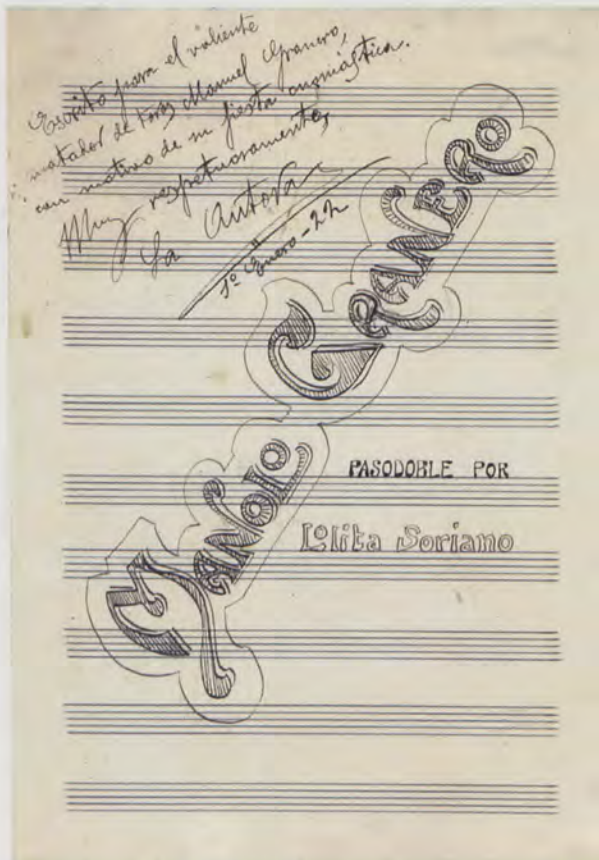 Escrito para el valiente
matador de toros Manuel Granero,
con motivo de su fiesta onomástica.
Muy respetuosamente,
La Autora
1º Enero-22
MANOLO GRANERO
PASODOBLE POR
Lolita Soriano